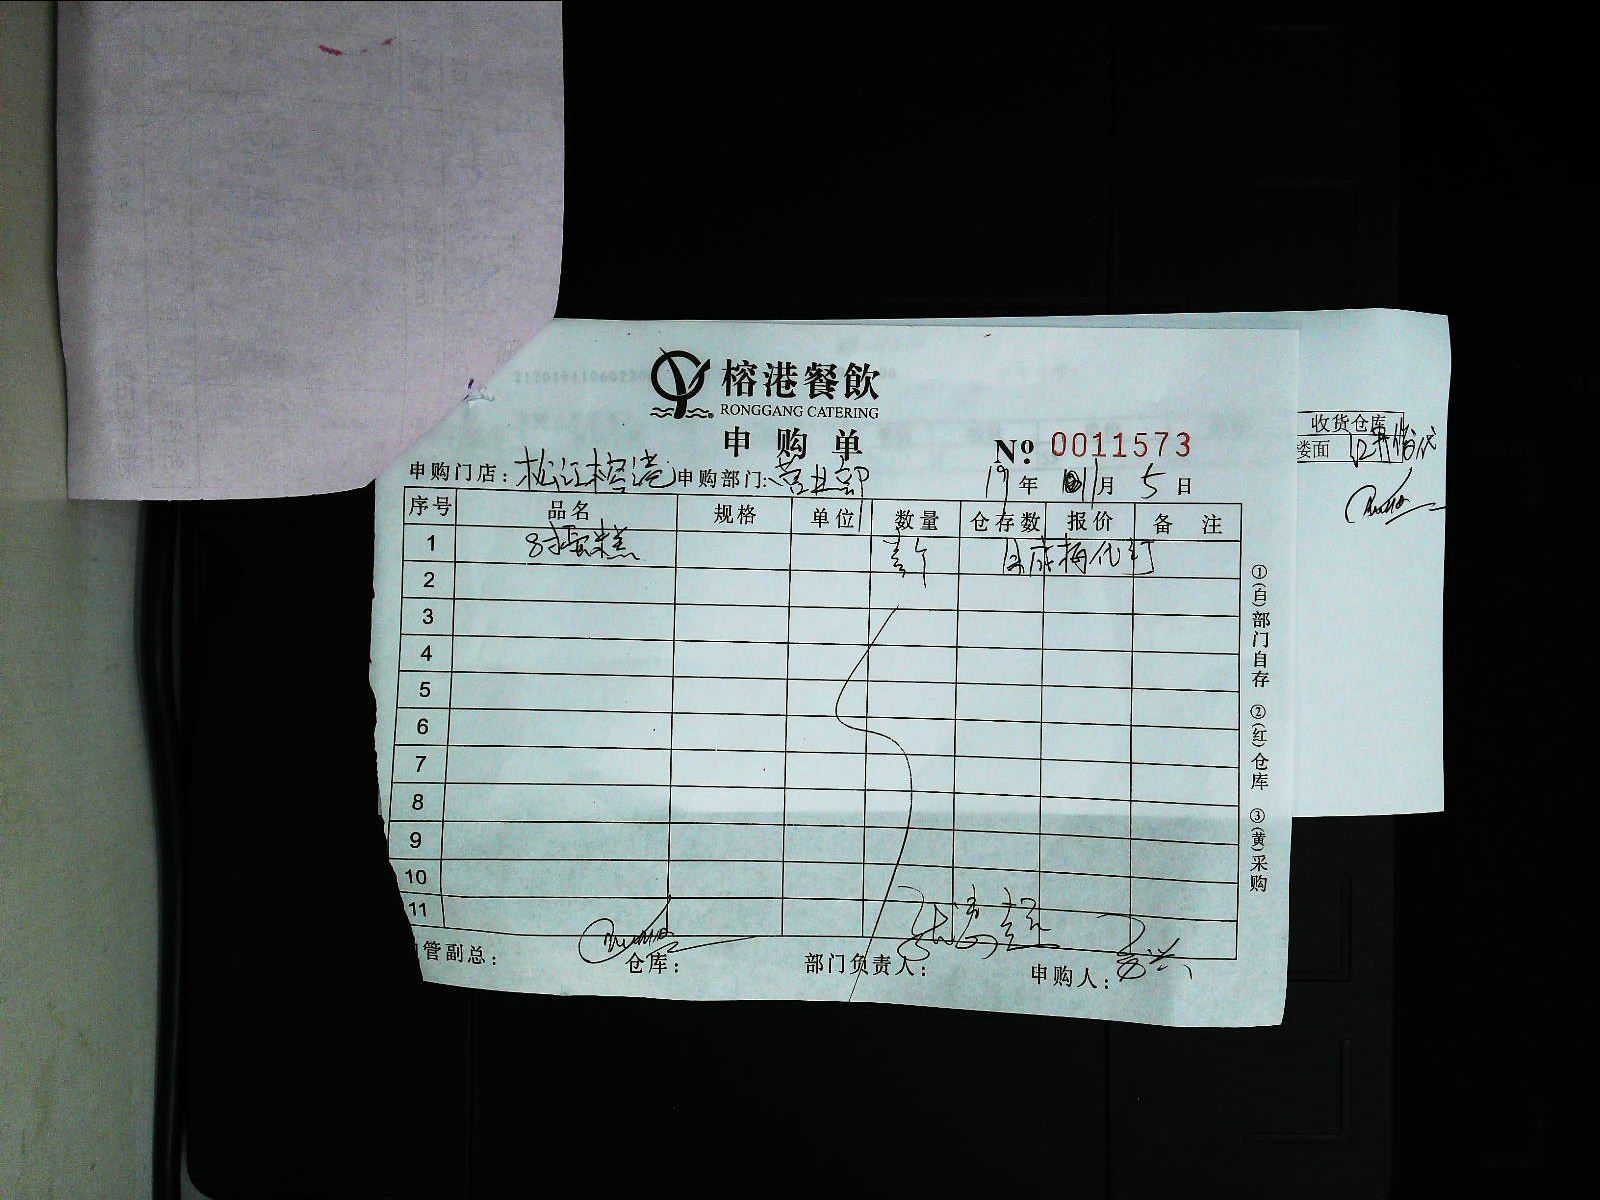 榕港餐飲
RONGGANG CATERING
申购单
№ 0011573
申购门店: 松江榕港 申购部门: 营业部 19年 11月 5日
序号 品名 规格 单位 数量 仓存数 报价 备注
1 8寸蛋糕 壹个
2
3
4
5
6
7
8
9
10
11
管副总: 仓库: 部门负责人: 申购人:
①(白)部门自存 ②(红)仓库 ③(黄)采购
收货仓库
楼面